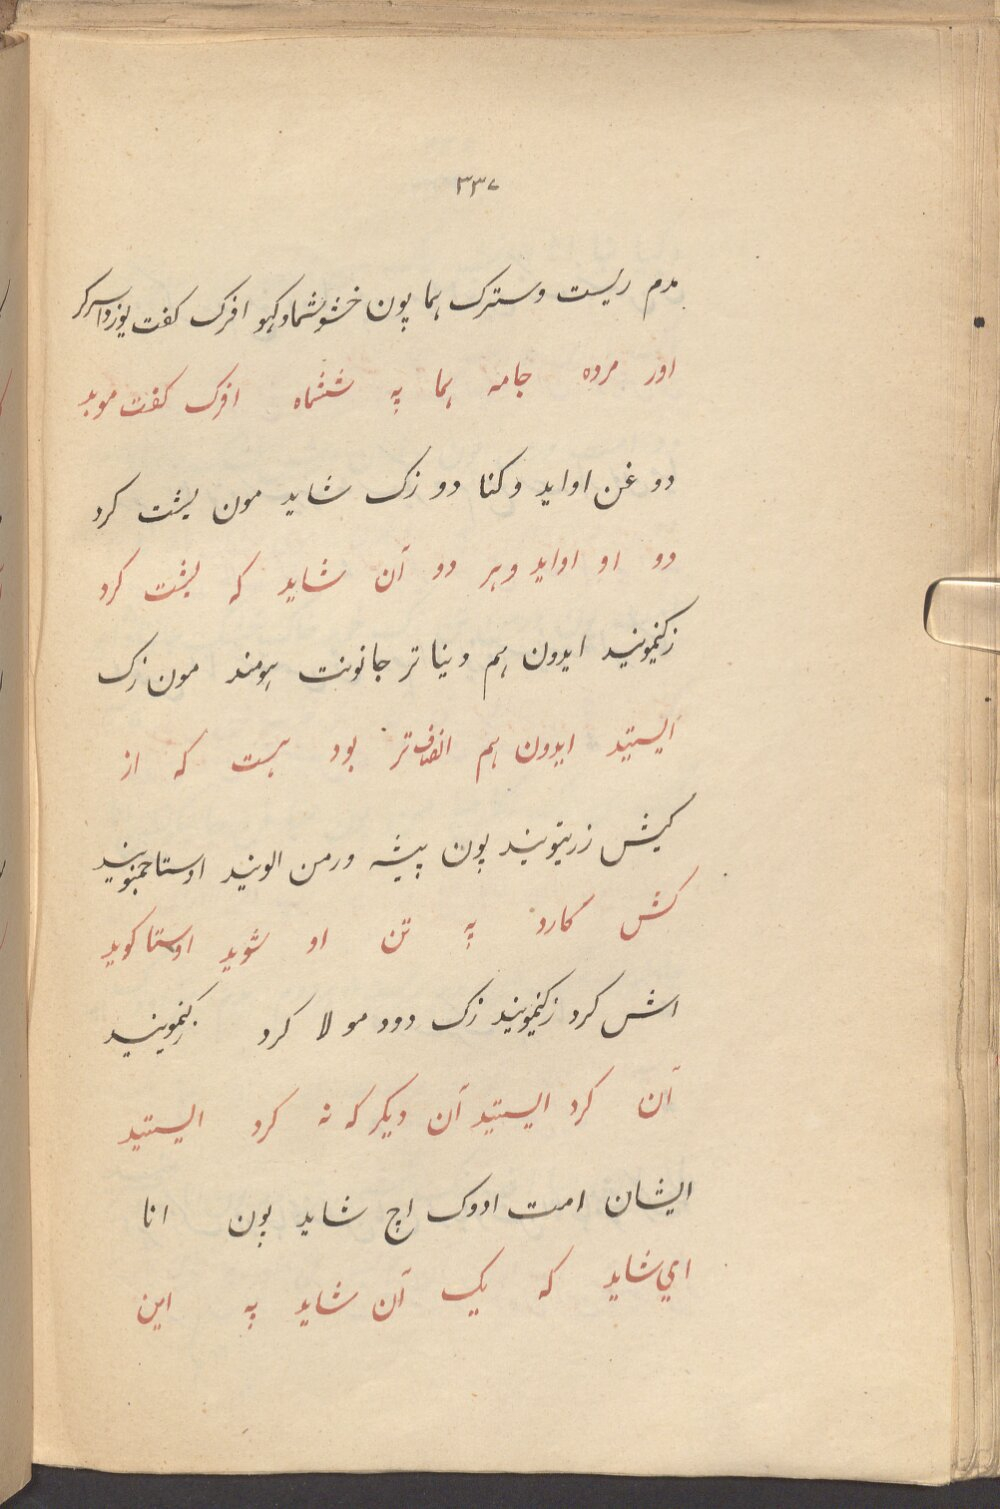 ۳۳۷
مدم ریست وسترک هما پون خشوشماوکهو افرک کفت یوزداسرکر
اور مرده جامه هما په ششماه افرک کفت موبد
دو غن اواید وکنا دو زک شاید مون یشت کرد
دو او اواید وهر دو آن شاید که یشت کرد
زکنیموینید ایدون هم وینا تر جانونت هومند مون زک
ایستید ایدون هم انصاف تر بود هست که از
کیش زریتوینید پون پیشه ورمن الویند اوستا
کش کارد په تن او شوید اوستا کوید
اش کرد زکنیموینید زک دود مو لا کرد زکنیموینید
آن کرد ایستید آن دیکر که نه کرد ایستید
ایشان امت ادوک اچ شاید پون انا
اي شاید که یک آن شاید په این